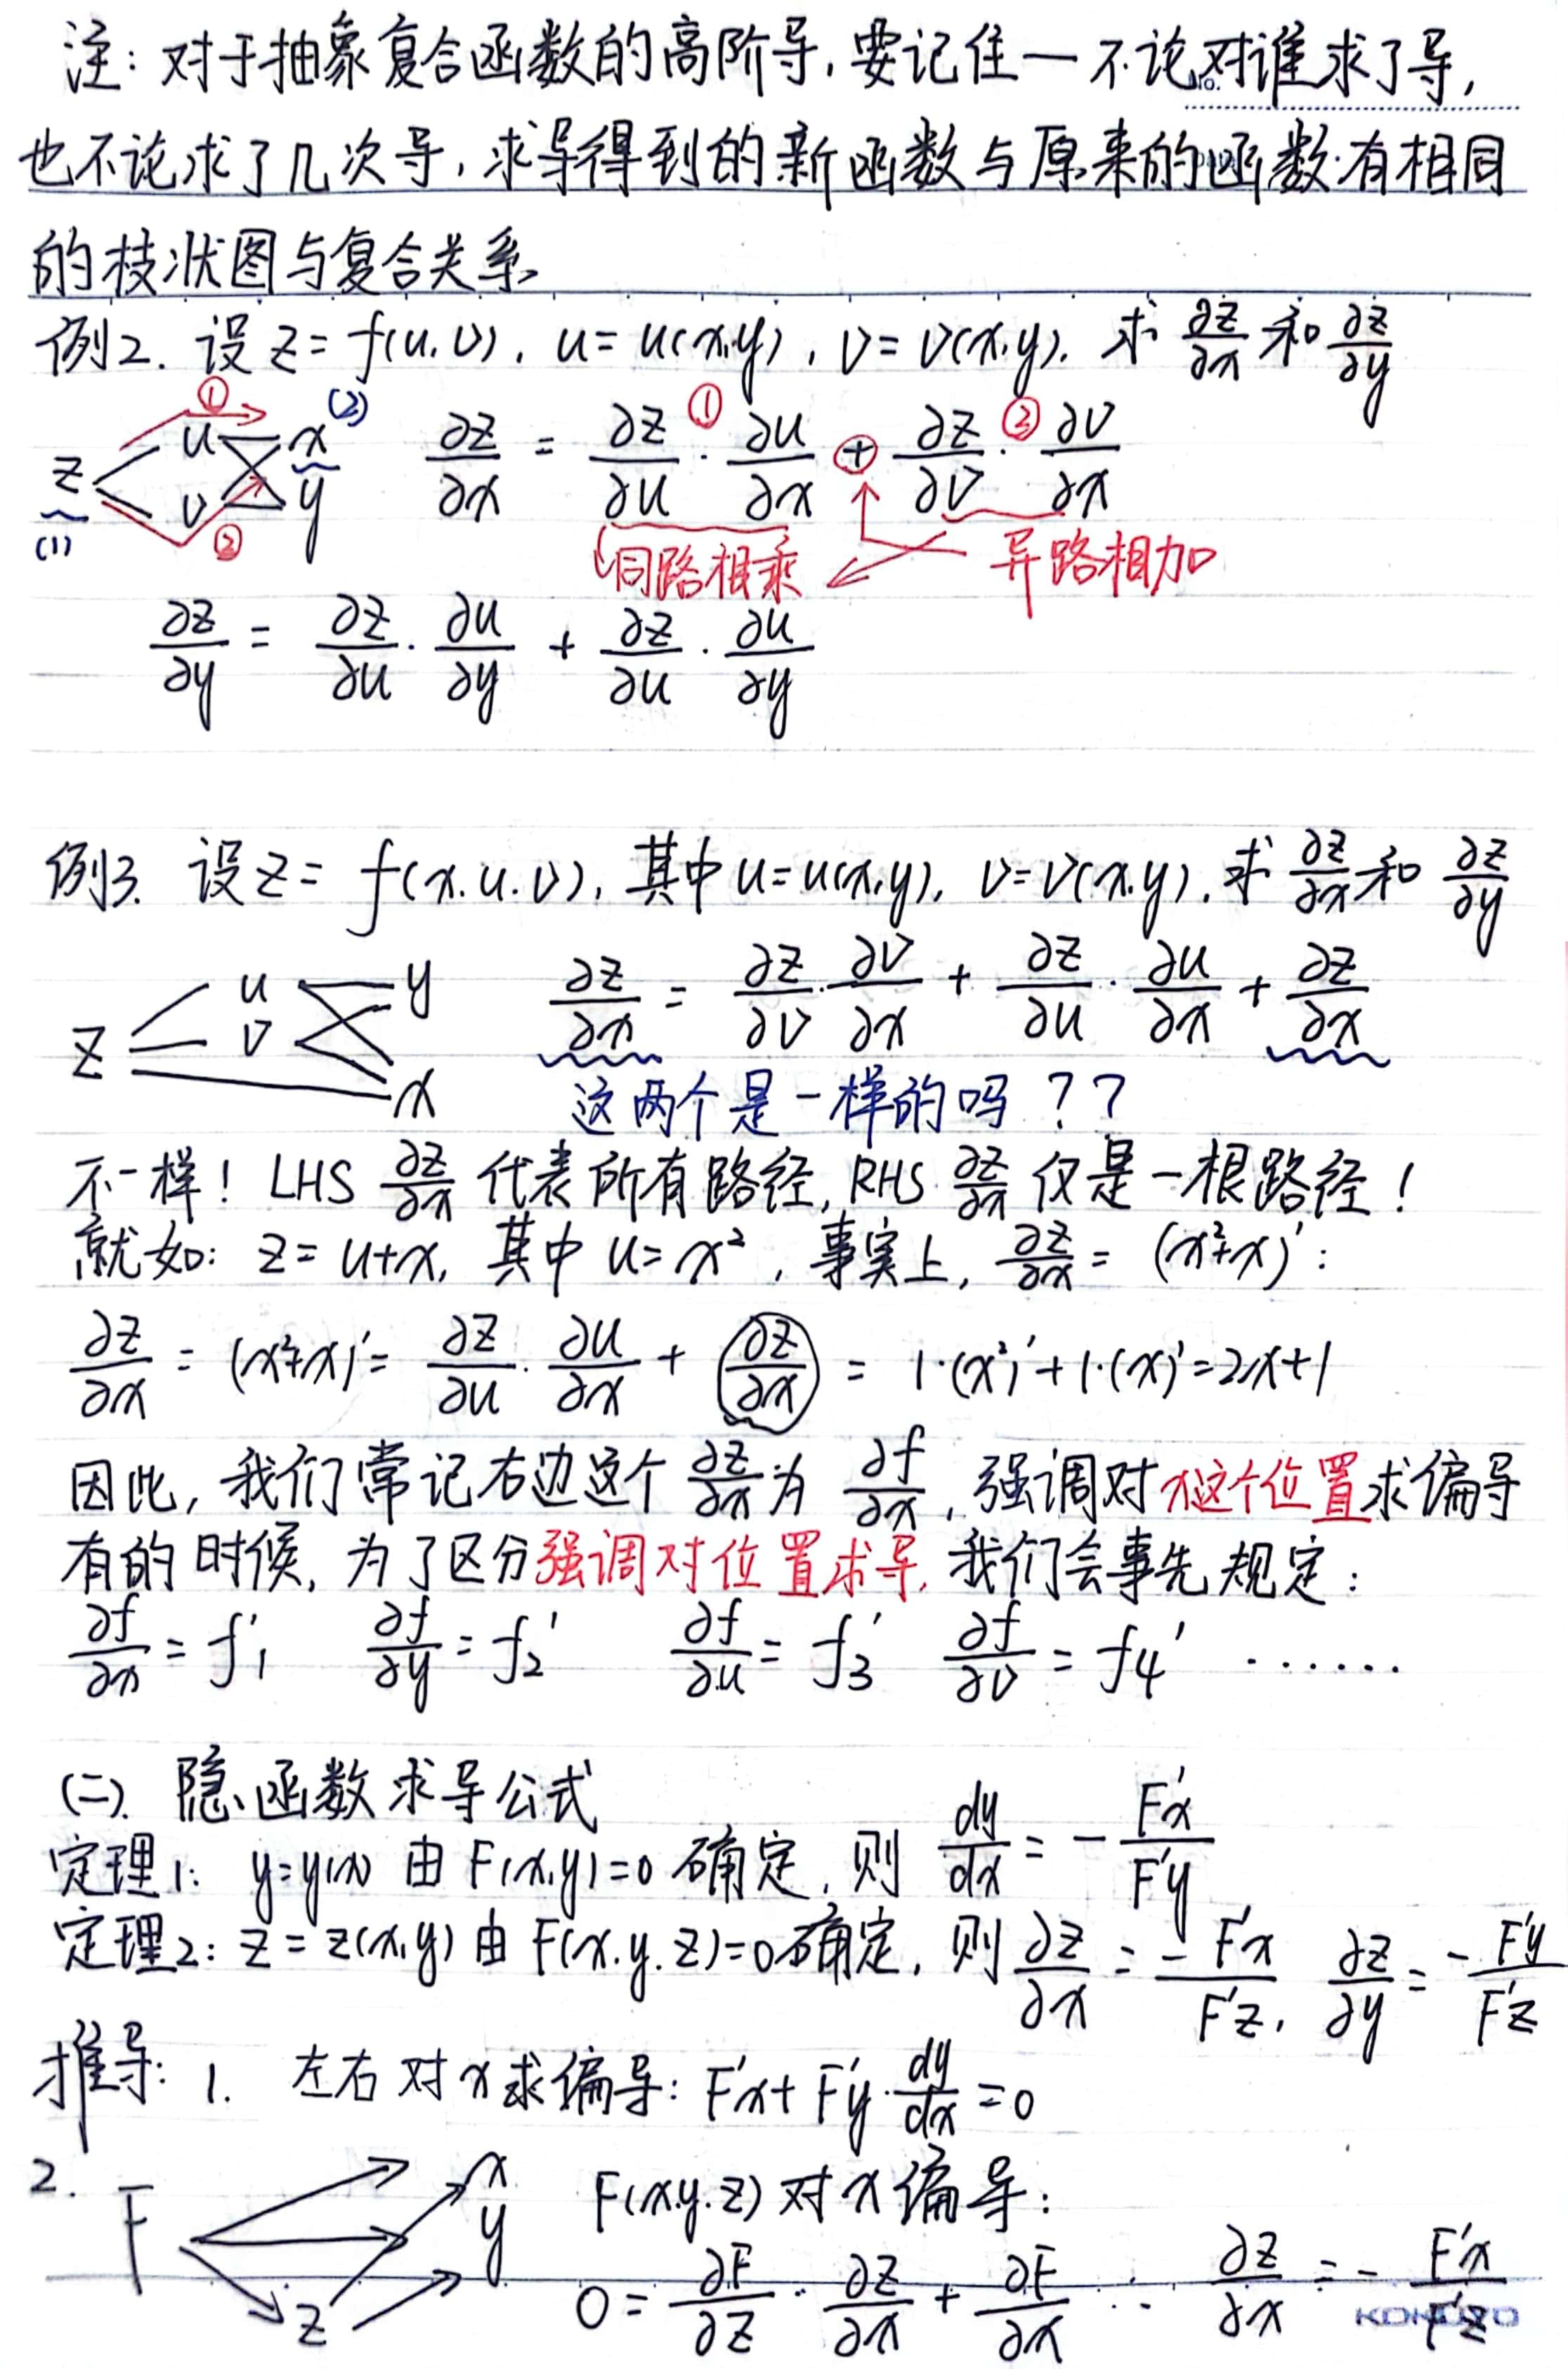 注：对于抽象复合函数的高阶导，要记住一不论对谁求了导，
No.
也不论求了几次导，求导得到的新函数与原来的函数有相同
的枝状图与复合关系
例2. 设 z = f(u.v), u = u(x,y), v = v(x,y). 求 ∂z/∂x 和 ∂z/∂y
① (2)
z u v x y ∂z/∂x = ∂z/∂u ① · ∂u/∂x + ∂z/∂v ② · ∂v/∂x
(1) ② 同路相乘 异路相加
∂z/∂y = ∂z/∂u · ∂u/∂y + ∂z/∂u · ∂u/∂y
例3. 设 z = f(x.u.v), 其中 u=u(x,y), v=v(x,y). 求 ∂z/∂x 和 ∂z/∂y
z u v y x ∂z/∂x = ∂z/∂v · ∂v/∂x + ∂z/∂u · ∂u/∂x + ∂z/∂x
这两个是一样的吗？？
不一样！LHS ∂z/∂x 代表所有路径, RHS ∂z/∂x 仅是一根路径！
就如: z = u+x, 其中 u = x², 事实上, ∂z/∂x = (x²+x)':
∂z/∂x = (x²+x)' = ∂z/∂u · ∂u/∂x + ∂z/∂x = 1·(x²)' + 1·(x)' = 2x+1
因此, 我们常记右边这个 ∂z/∂x 为 ∂f/∂x, 强调对x这个位置求偏导
有的时候, 为了区分强调对位置求导, 我们会事先规定:
∂f/∂x = f₁' ∂f/∂y = f₂' ∂f/∂u = f₃' ∂f/∂v = f₄' ……
(二). 隐函数求导公式
定理1: y=y(x) 由 F(x,y)=0 确定, 则 dy/dx = - F'x/F'y
定理2: z = z(x,y) 由 F(x.y.z)=0确定, 则 ∂z/∂x = -F'x/F'z, ∂z/∂y = - F'y/F'z
推导: 1. 左右对x求偏导: F'x + F'y · dy/dx = 0
2. F x y z F(x.y.z) 对x偏导:
0 = ∂F/∂z · ∂z/∂x + ∂F/∂x ∴ ∂z/∂x = - F'x/F'z
KOKUYO